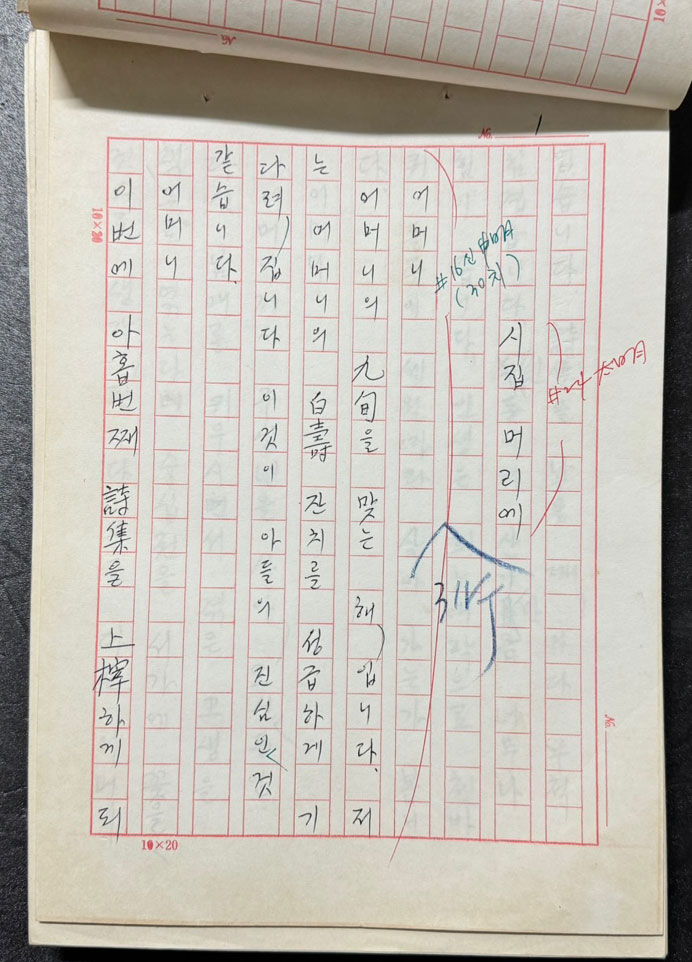 № 1
시집 머리에
어머니
어머니의 九旬을 맞는 해입니다. 저
는 어머니의 白壽 잔치를 성급하게 기
다려집니다 이것이 아들의 진심인 것
같습니다.
어머니
이번에 아홉번째 詩集을 上梓하게 되
10×20
10×20
№
№
10×